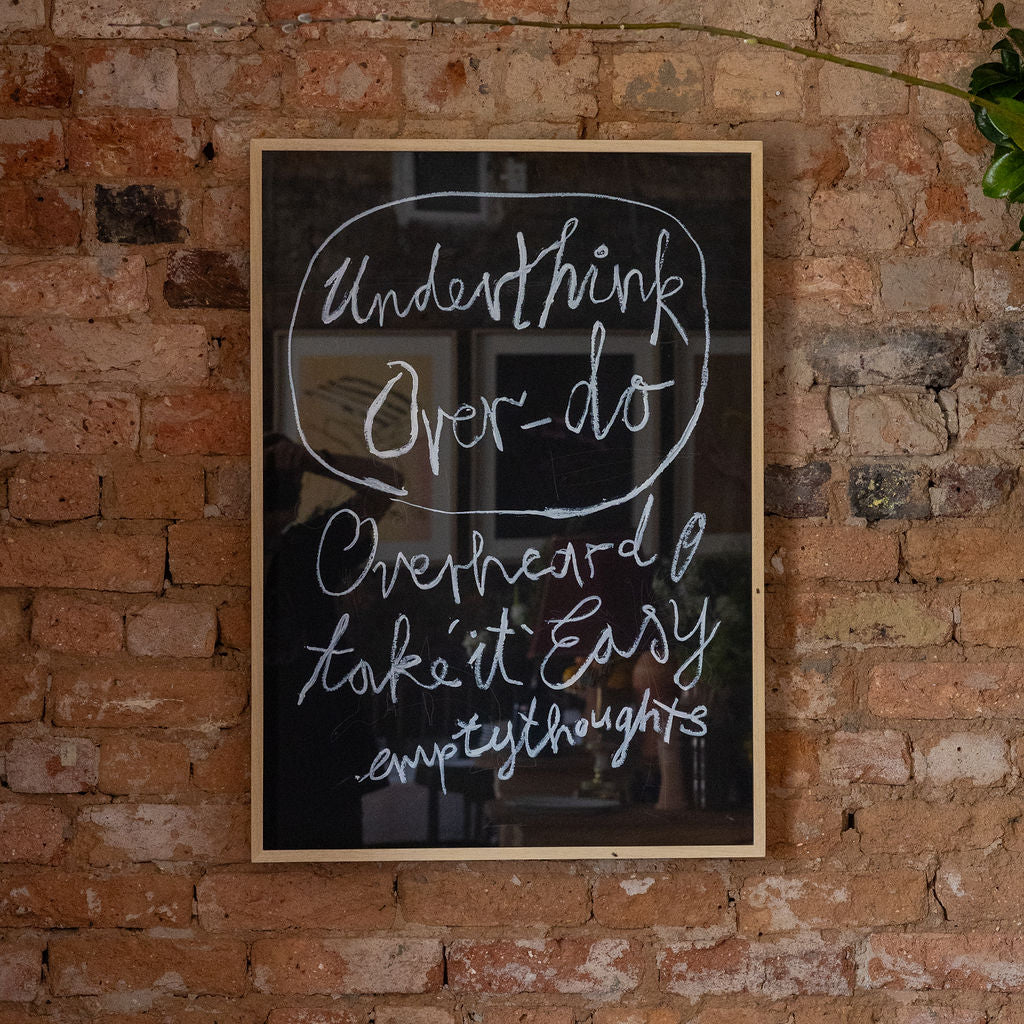 Underthink
Over-do
Overheard @
take 'it' Easy
emptythoughts